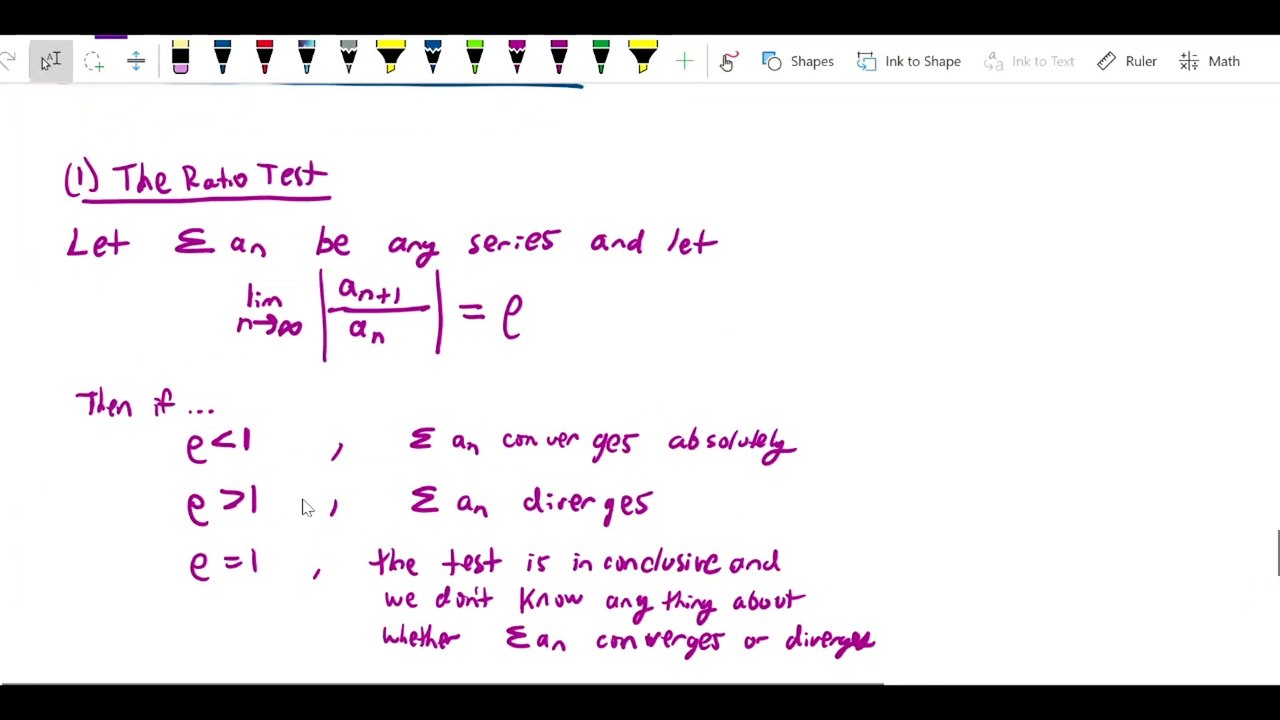 Shapes Ink to Shape Ink to Text Ruler Math
(1) The Ratio Test
Let Σ an be any series and let
lim n→∞ | an+1 / an | = ρ
Then if ...
ρ < 1 , Σ an converges absolutely
ρ > 1 , Σ an diverges
ρ = 1 , the test is inconclusive and
we don't know anything about
whether Σ an converges or diverges